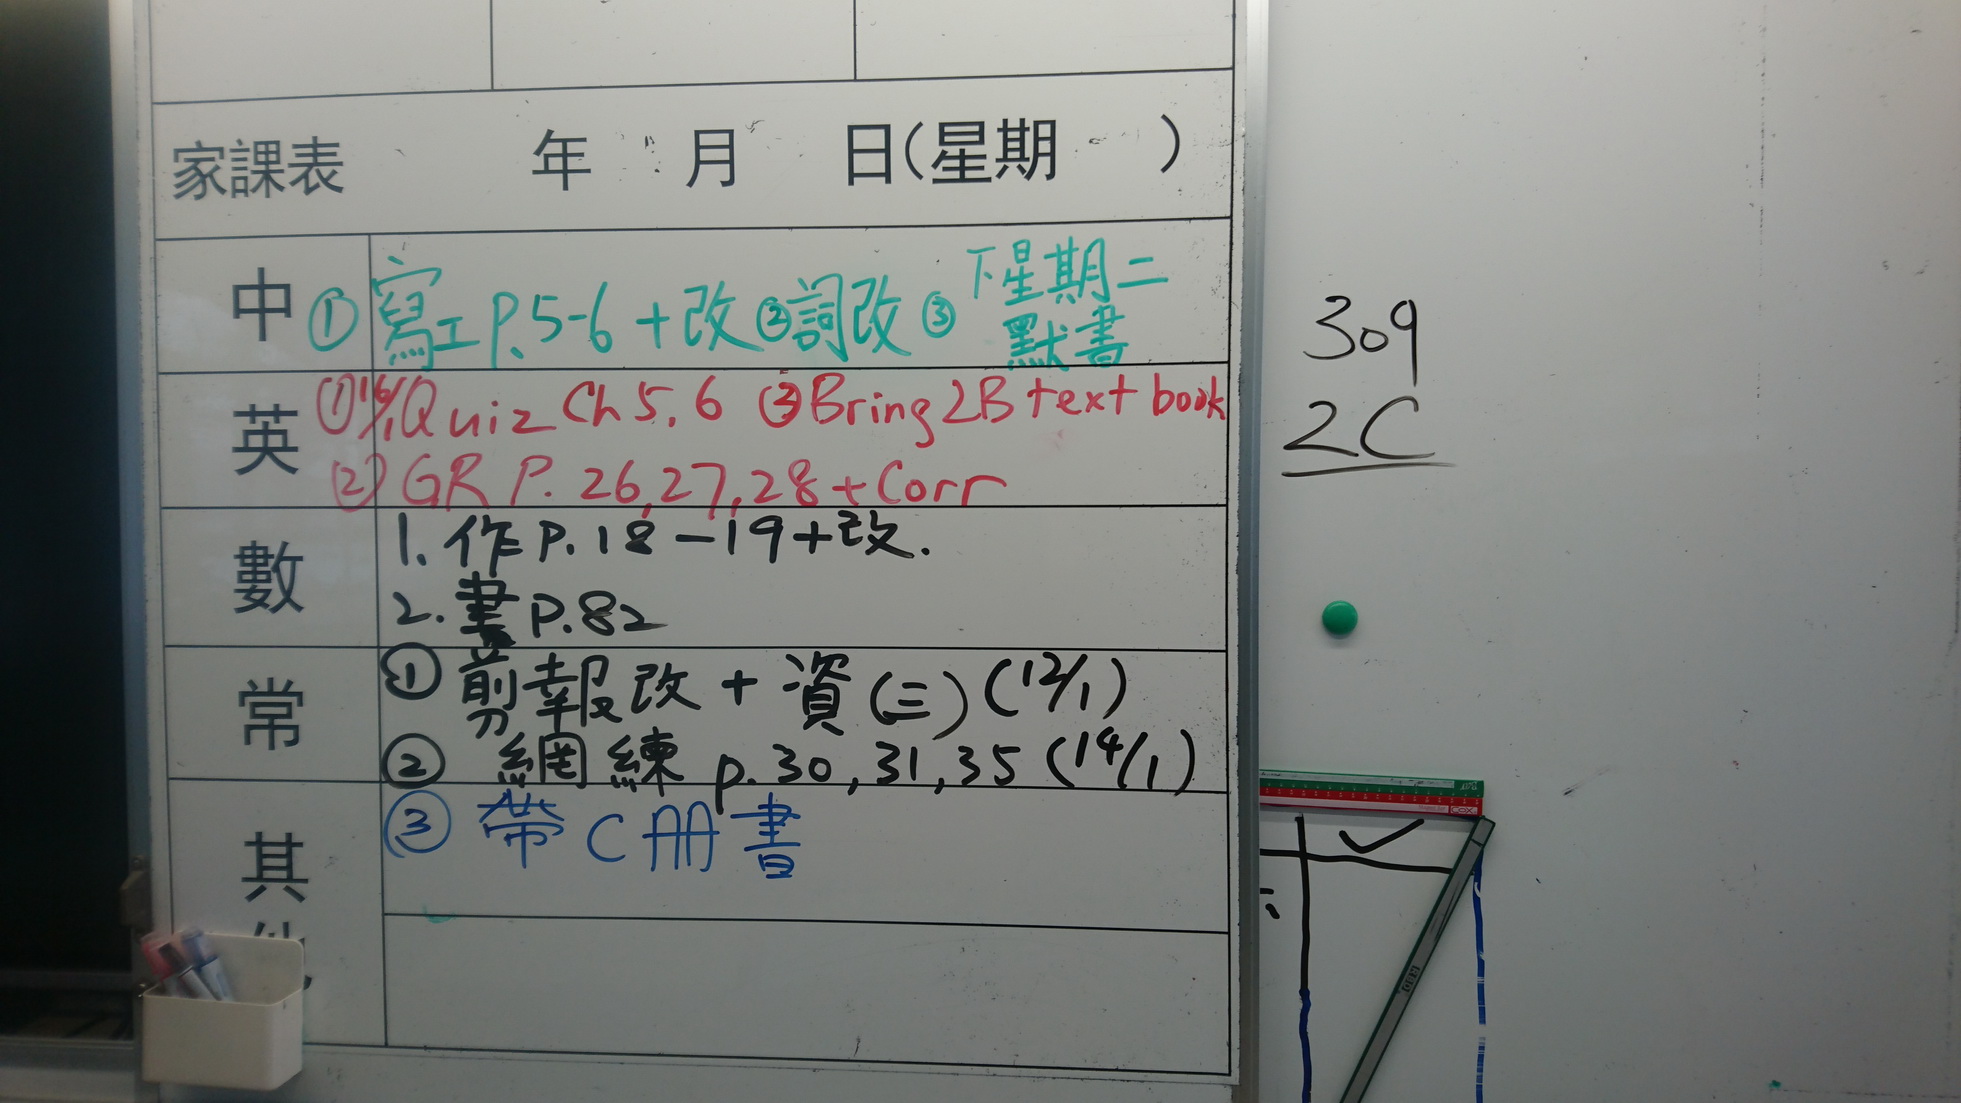 家課表 年 月 日(星期 )
中 ① 寫工 P.5-6 + 改 ② 詞改 ③ 下星期二
默書
英 ① 16/1 Quiz Ch 5, 6 ③ Bring 2B textbook
② GR P. 26, 27, 28 + Corr
數 1. 作 P.18-19+改.
2. 書 P.82
常 ① 剪報改 + 資(三) (12/1)
② 網練 p.30, 31, 35 (14/1)
其他 ③ 帶C冊書
309
2C